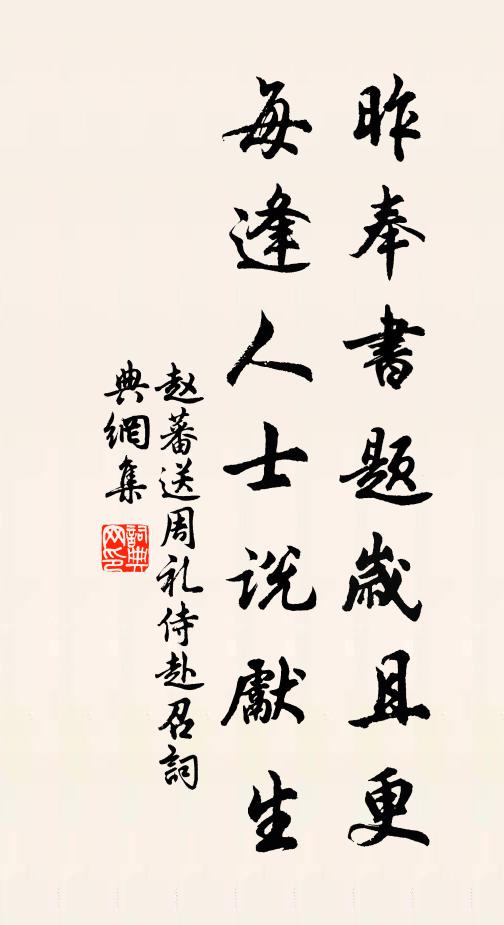 昨奉書题歲且更
每逢人士说獻生
赵蕃送周礼侍赴召詞
典網集
詞典
网印